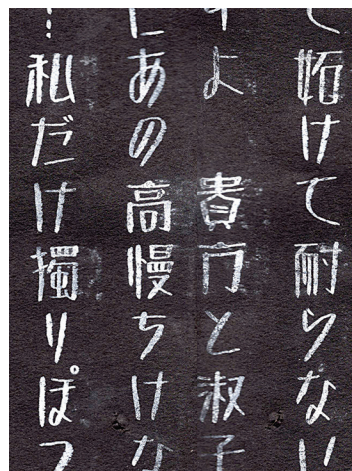 妬けて耐らない
すよ 貴方と淑子
あの高慢ちけな
…私だけ獨りぽつ